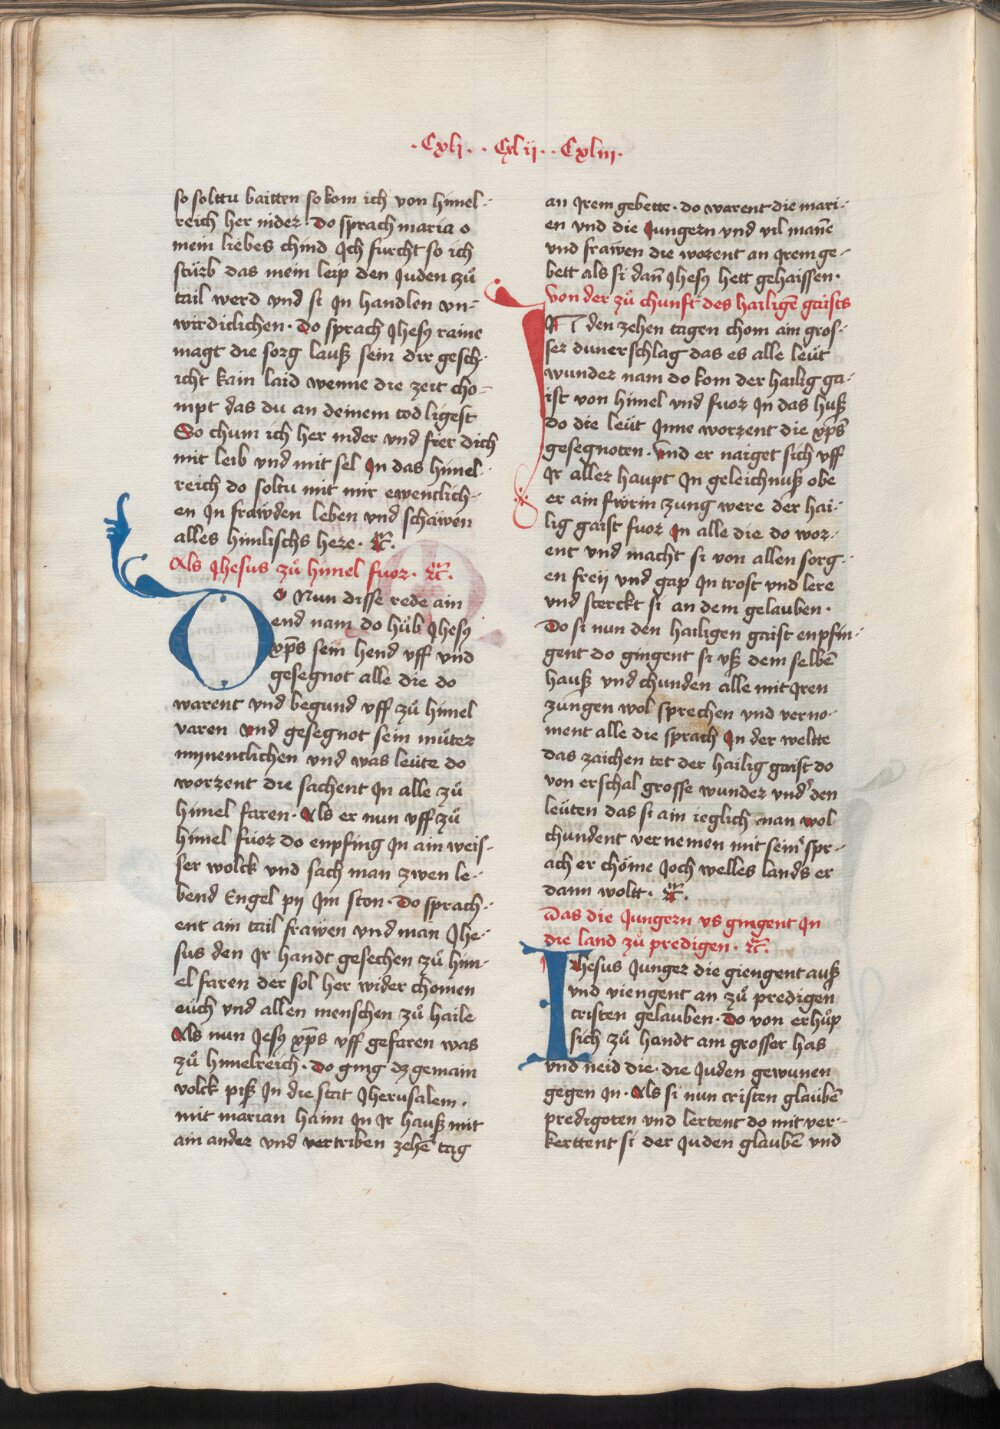 ·Cxlj· ·Cxlij· ·Cxliij·
so solttu baitten so kom ich von himel-
reich her nider· Do sprach maria o
mein liebes chind Ich furcht so ich
stürb das mein leip den Juden zů
tail werd vnd si In handlen vn-
wirdiclichen· Do sprach Jhesꝰ raine
magt die sorg lauß sein dir gesch-
icht kain laid wenne die zeit cho-
mpt das du an deinem tod ligest
So chum ich her nider vnd fier dich
mit leib vnd mit sel In das himel-
reich do soltu mit mir ewenclich-
en In fräwden leben vnd schäwen
alles himlischs here· ꝛc̃·
Als Jhesus zů himel fuor· ꝛc̃·
Do Nun disse rede ain
end nam do hůb Jhesꝰ
xp̄s sein hend vff vnd
gesegnot alle die do
warent vnd begund vff zů himel
varen vnd gesegnot sein můter
mynenclichen vnd was leüte do
worzent die sachent In alle zů
himel faren· Als er nun vff zů
himel fůor do enpfing In ain weis-
ser wolck vnd sach man zwen le-
bend Engel pij Im ston· Do sprach-
ent ain tail fräwen vnd man Jhe-
sus den Ir handt gesechen zů him-
el faren der sol her wider chomen
eüch vnd allen menschen zů haile
Als nun Jesꝰ xp̄s vff gefaren was
zů himelreich· Do ging dz gemain
volck piß In die stat Jherusalem·
mit marian haim In Ir hauß mit
ain ander vnd vertriben zehē tag
an Irem gebette· do warent die mari-
en vnd die Jungern vnd vil manē
vnd frawen die worent an Irem ge-
bett als si dañ Jhesꝰ hett gehaissen·
Von der zů chunft des hailigē gaists
IN den zehen tagen chom ain gros-
ser dunerschlag das es alle leüt
wunder nam do kom der hailig ga-
ist von himel vnd fuor In das huß
do die leüt Inne worzent die xp̄s
gesegnoten· Vnd er naiget sich vff
Ir aller haupt In geleichnuß obe
er ain fwrin zung were der hai-
lig gaist fuor In alle die do wor-
ent vnd macht si von allen sorg-
en freij vnd gap In trost vnd lere
vnd sterckt si an dem gelauben·
Do si nun den hailigen gaist enpfin-
gent do gingent si vß dem selbē
hauß vnd chunden alle mit Iren
zungen wol sprechen vnd verno-
ment alle die sprach In der weltte
das zaichen tet der hailig gaist do
von erschal grosse wunder vnder den
leüten das si ain ieglich man wol
chundent vernemen mit seiner spr-
ach er chöme Joch welles lands er
dann woltt· ꝛc̃·
Das die Jungern vs gingent In
die land zů predigen· ꝛc̃·
Ihesus Junger die giengent auß
vnd viengent an zů predigen
cristen gelauben· Do von erhůp
sich zů handt am grosser has
vnd neid die· die Juden gewunen
gegen In· Als si nun cristen glaubē
predigoten vnd lertent do mit ver-
kerttent si der Juden glaubē vnd